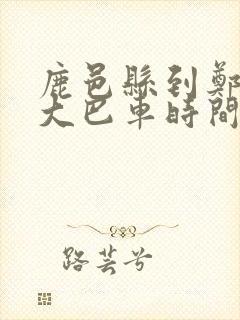 鹿邑縣到鄭
大巴車時間
路芸兮